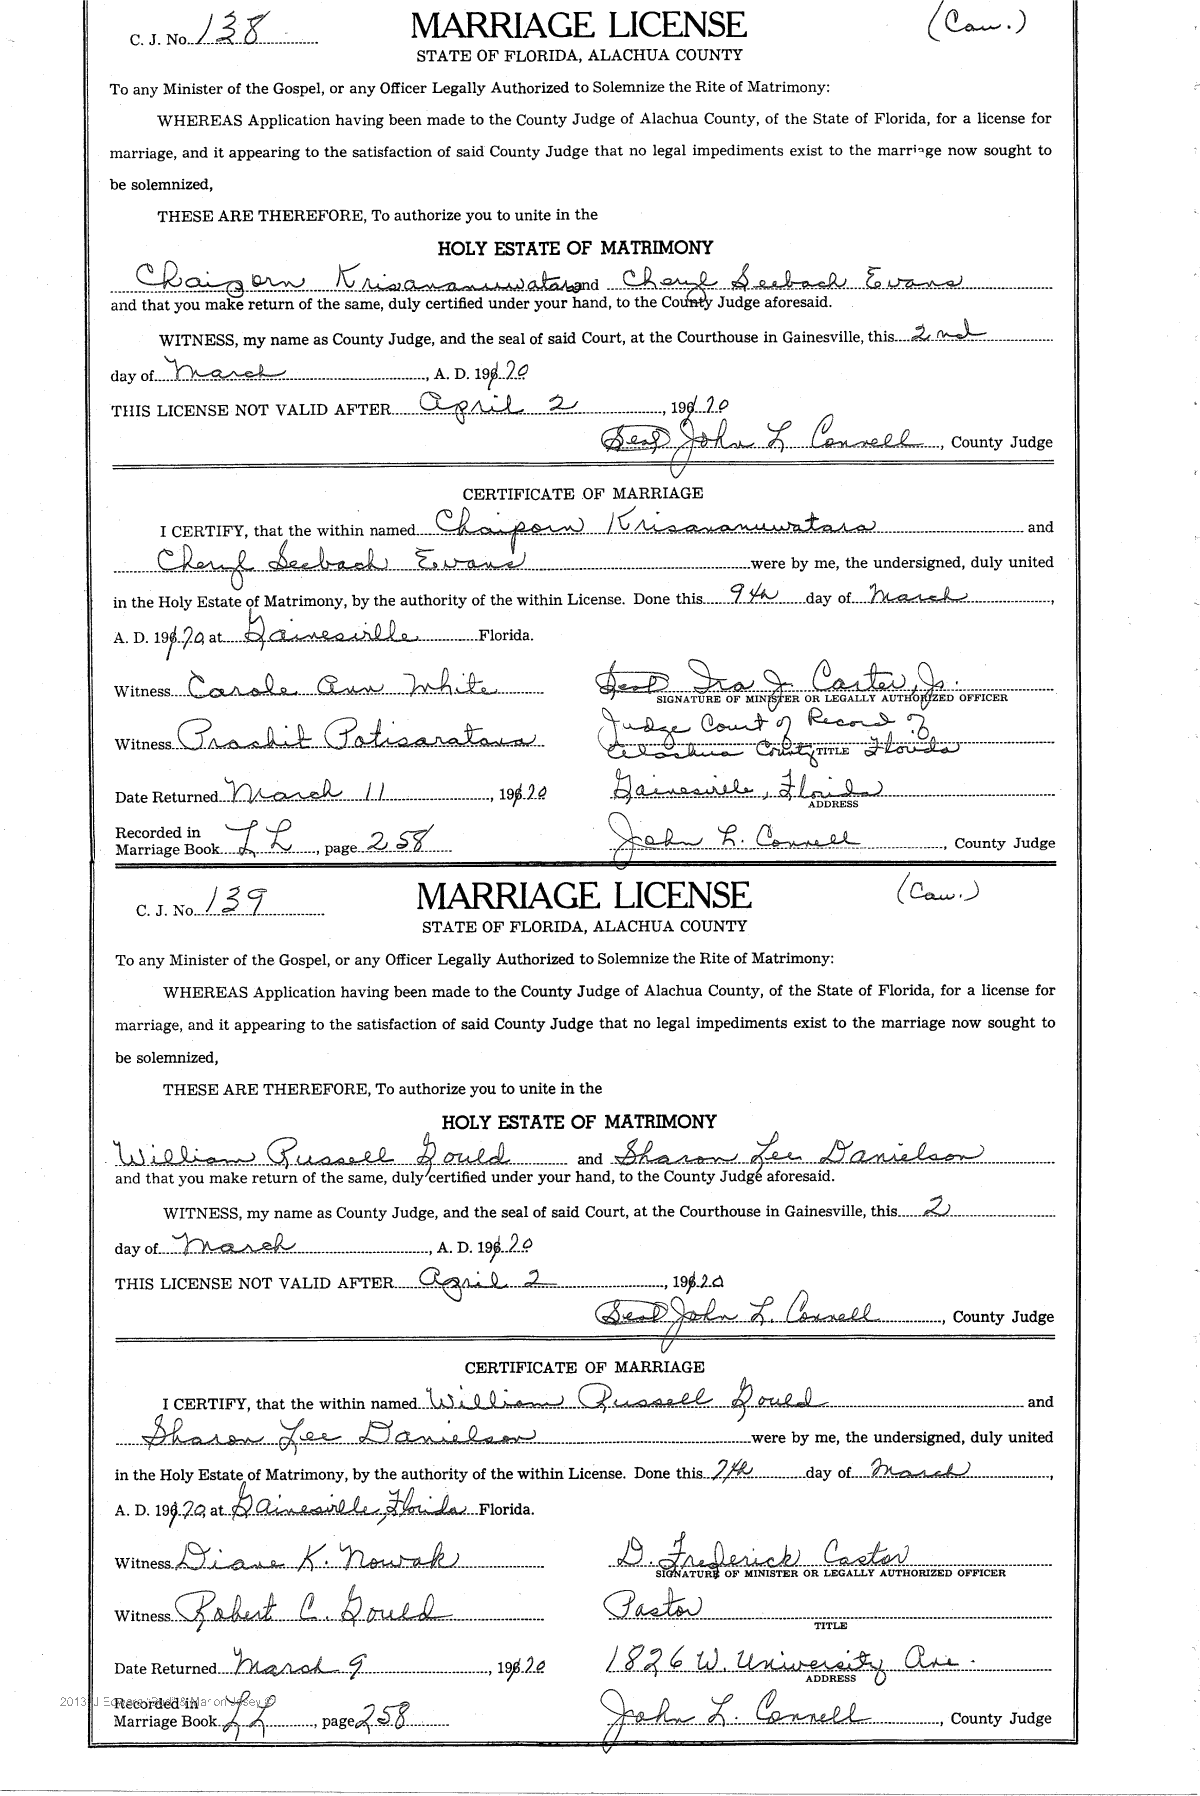 C. J. No. 138 MARRIAGE LICENSE (Cau.)
STATE OF FLORIDA, ALACHUA COUNTY
To any Minister of the Gospel, or any Officer Legally Authorized to Solemnize the Rite of Matrimony:
WHEREAS Application having been made to the County Judge of Alachua County, of the State of Florida, for a license for
marriage, and it appearing to the satisfaction of said County Judge that no legal impediments exist to the marriage now sought to
be solemnized,
THESE ARE THEREFORE, To authorize you to unite in the
HOLY ESTATE OF MATRIMONY
Chaiporn Krisananuwatara and Cheryl Seebach Evans
and that you make return of the same, duly certified under your hand, to the County Judge aforesaid.
WITNESS, my name as County Judge, and the seal of said Court, at the Courthouse in Gainesville, this 2nd
day of March, A. D. 1970
THIS LICENSE NOT VALID AFTER April 2, 1970
(Seal) John L Connell, County Judge
CERTIFICATE OF MARRIAGE
I CERTIFY, that the within named Chaiporn Krisananuwatara and
Cheryl Seebach Evans were by me, the undersigned, duly united
in the Holy Estate of Matrimony, by the authority of the within License. Done this 9th day of March,
A. D. 1970, at Gainesville Florida.
Witness Carole Ann White (Seal) Ira J. Carter, Jr.
SIGNATURE OF MINISTER OR LEGALLY AUTHORIZED OFFICER
Judge Court of Record of
Witness Prachit Potisaratara Alachua County Florida
TITLE
Date Returned March 11, 1970 Gainesville, Florida
ADDRESS
Recorded in
Marriage Book LL, page 258 John L. Connell, County Judge
C. J. No. 139 MARRIAGE LICENSE (Cau.)
STATE OF FLORIDA, ALACHUA COUNTY
To any Minister of the Gospel, or any Officer Legally Authorized to Solemnize the Rite of Matrimony:
WHEREAS Application having been made to the County Judge of Alachua County, of the State of Florida, for a license for
marriage, and it appearing to the satisfaction of said County Judge that no legal impediments exist to the marriage now sought to
be solemnized,
THESE ARE THEREFORE, To authorize you to unite in the
HOLY ESTATE OF MATRIMONY
William Russell Gould and Sharon Lee Danielson
and that you make return of the same, duly certified under your hand, to the County Judge aforesaid.
WITNESS, my name as County Judge, and the seal of said Court, at the Courthouse in Gainesville, this 2
day of March, A. D. 1970
THIS LICENSE NOT VALID AFTER April 2, 1970
(Seal) John L. Connell, County Judge
CERTIFICATE OF MARRIAGE
I CERTIFY, that the within named William Russell Gould and
Sharon Lee Danielson were by me, the undersigned, duly united
in the Holy Estate of Matrimony, by the authority of the within License. Done this 7th day of March,
A. D. 1970, at Gainesville, Florida Florida.
Witness Diane K. Nowak D. Frederick Castor
SIGNATURE OF MINISTER OR LEGALLY AUTHORIZED OFFICER
Witness Robert C. Gould Pastor
TITLE
Date Returned March 9, 1970 1826 W. University Ave.
ADDRESS
Recorded in
Marriage Book LL, page 258 John L. Connell, County Judge